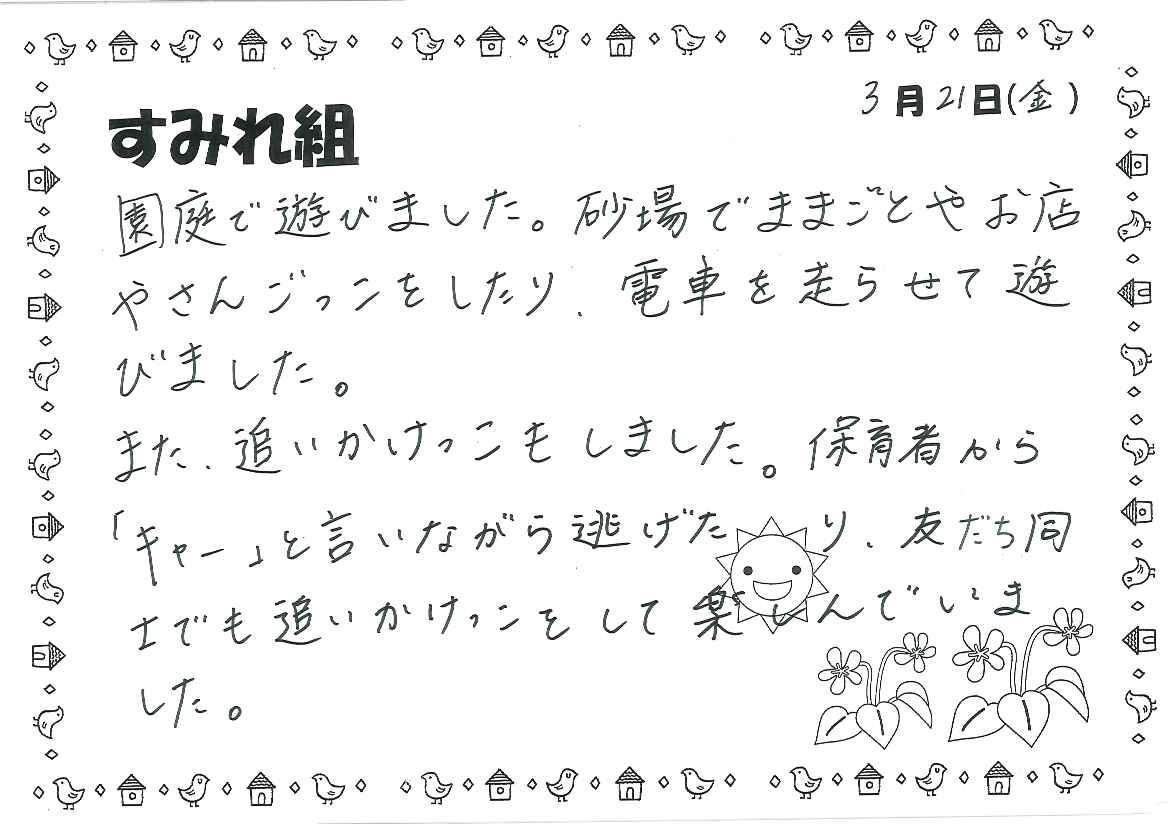 3月21日(金)
すみれ組
園庭で遊びました。砂場でままごとやお店
やさんごっこをしたり、電車を走らせて遊
びました。
また、追いかけっこもしました。保育者から
「キャー」と言いながら逃げたり、友だち同
士でも追いかけっこをして楽しんでいま
した。